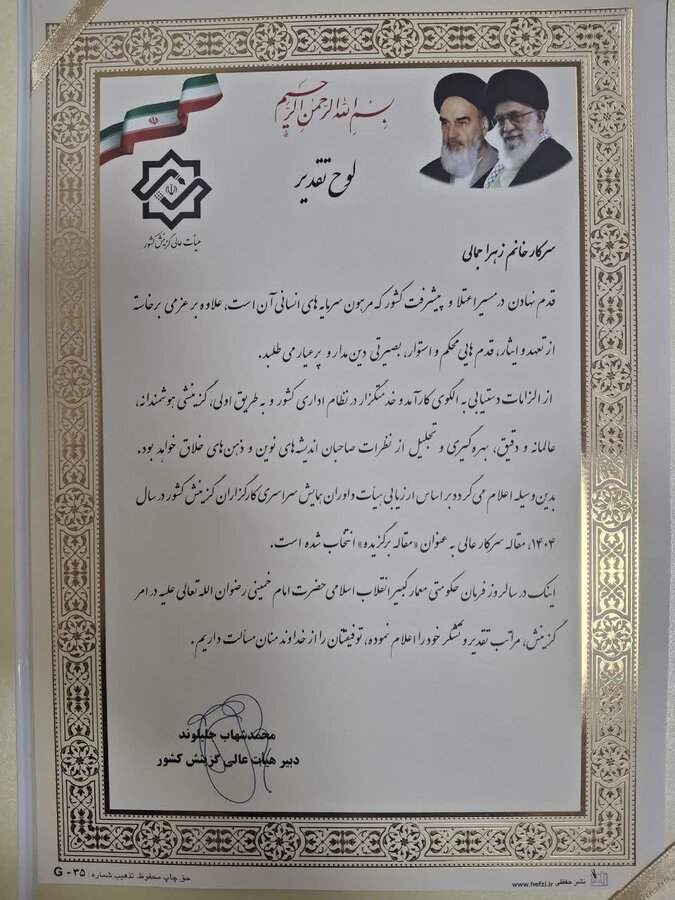 بسم الله الرحمن الرحیم
لوح تقدیر
هیأت عالی گزینش کشور
سرکار خانم زهرا جمالی
قدم نهادن در مسیر اعتلا و پیشرفت کشور که مرهون سرمایه های انسانی آن است، علاوه بر عزمی برخاسته
از تعهد و ایثار، قدم هایی محکم و استوار، بصیرتی دین مدار و پرعیار می طلبد.
از الزامات دستیابی به الگوی کارآمد و خدمتگزار در نظام اداری کشور و به طریق اولی، گزینشی هوشمندانه،
عالمانه و دقیق، بهره گیری و تجلیل از نظرات صاحبان اندیشه های نوین و ذهن های خلاق خواهد بود.
بدین وسیله اعلام می گردد بر اساس ارزیابی هیأت داوران همایش سراسری کارگزاران گزینش کشور در سال
۱۴۰۴، مقاله سرکار عالی به عنوان «مقاله برگزیده» انتخاب شده است.
اینک در سالروز فرمان حکومتی معمار کبیر انقلاب اسلامی حضرت امام خمینی رضوان الله تعالی علیه در امر
گزینش، مراتب تقدیر و تشکر خود را اعلام نموده، توفیقتان را از خداوند منان مسألت داریم.
محمدشهاب جلیلوند
دبیر هیأت عالی گزینش کشور
نشر حفظی www.hefzi.ir
حق چاپ محفوظ. تذهیب شماره: G - ۳۵